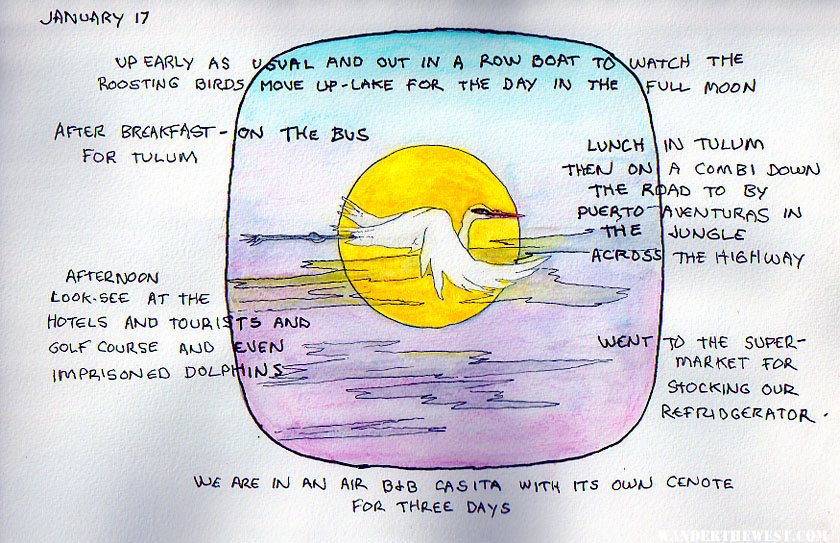 JANUARY 17
UP EARLY AS USUAL AND OUT IN A ROW BOAT TO WATCH THE
ROOSTING BIRDS MOVE UP-LAKE FOR THE DAY IN THE FULL MOON
AFTER BREAKFAST - ON THE BUS
FOR TULUM
LUNCH IN TULUM
THEN ON A COMBI DOWN
THE ROAD TO BY
PUERTO AVENTURAS IN
THE JUNGLE
ACROSS THE HIGHWAY
AFTERNOON
LOOK-SEE AT THE
HOTELS AND TOURISTS AND
GOLF COURSE AND EVEN
IMPRISONED DOLPHINS
WENT TO THE SUPER-
MARKET FOR
STOCKING OUR
REFRIDGERATOR.
WE ARE IN AN AIR B&B CASITA WITH ITS OWN CENOTE
FOR THREE DAYS
WANDERTHEWEST.COM